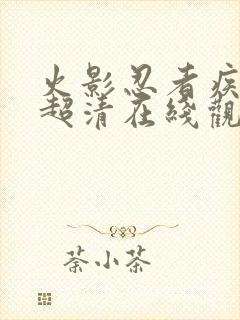 火影忍者疾
超清在綫觀
荼小茶